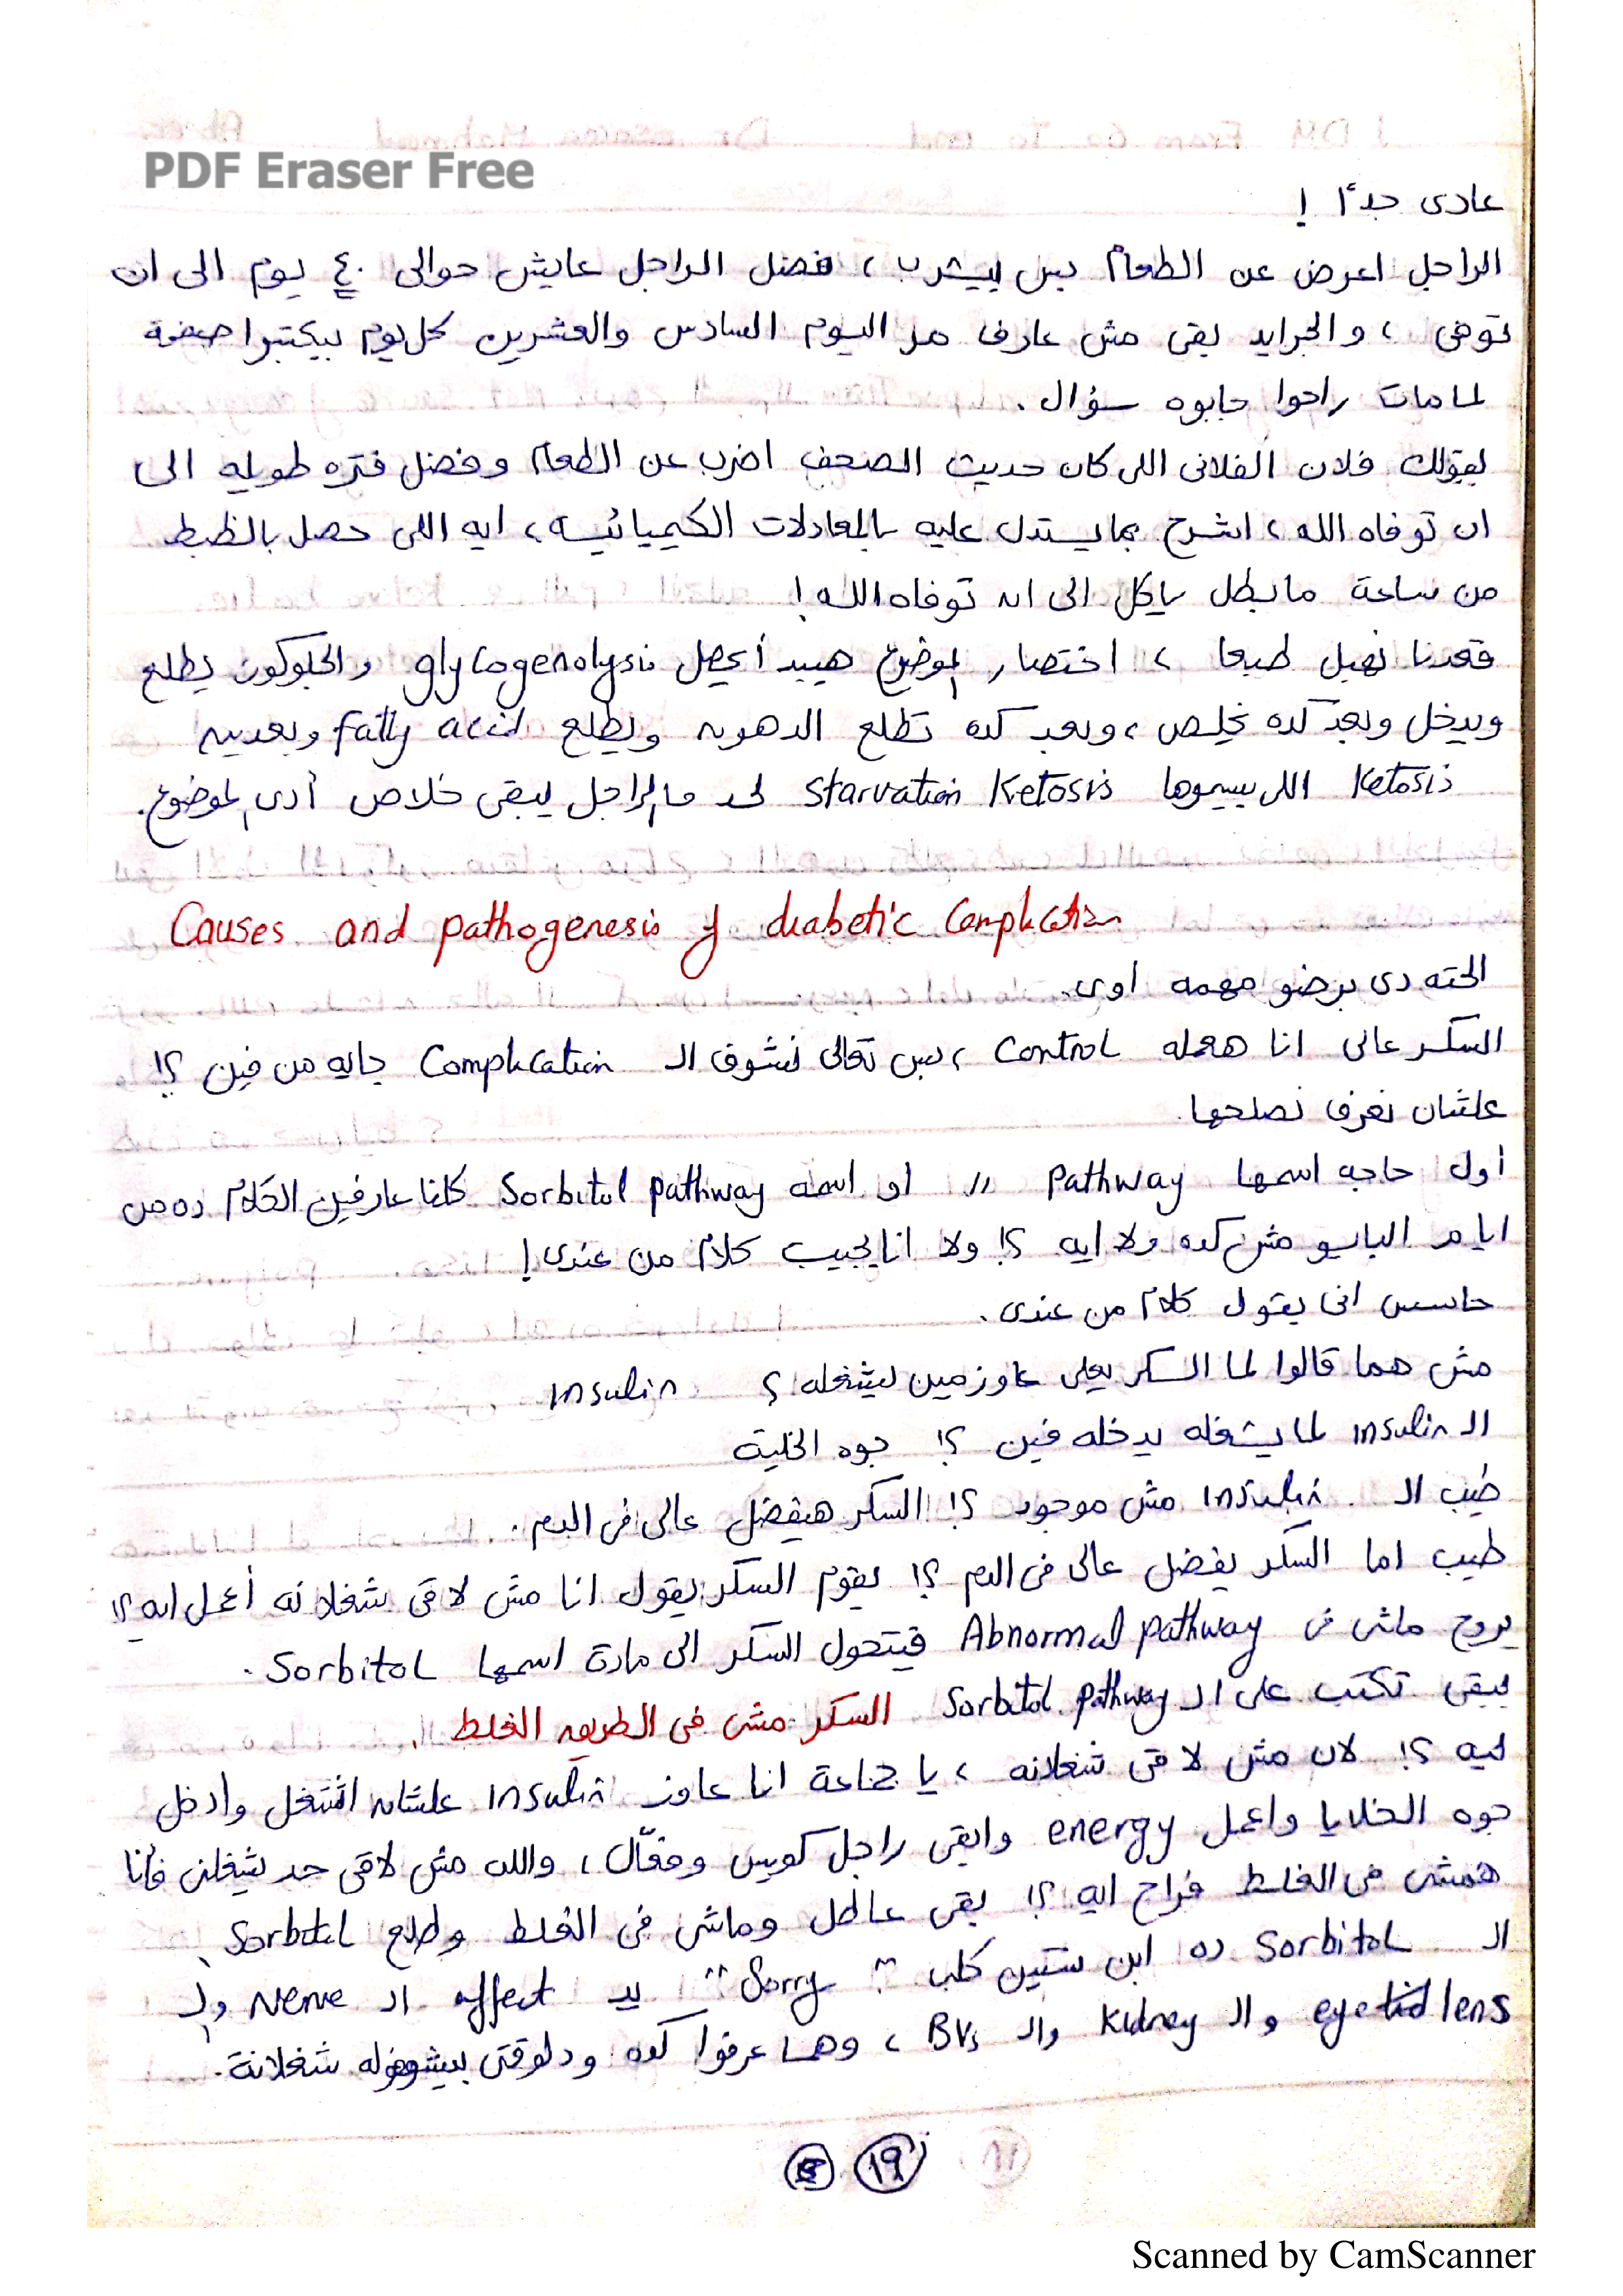 PDF Eraser Free
عادى جدًا !
الراجل اعرض عن الطعام بس بيشرب ، فضل الراجل عايش حوالى ٤٠ يوم الى ان
توفى ، والجرايد بقى مش عارف هد اليوم السادس والعشرين كل يوم بيكتبوا صفحة
لما مات راحوا جابوه سؤال .
بيقولك فلان الفلانى اللى كان حديث الصحف اضرب عن الطعام وفضل فتره طويله الى
ان توفاه الله ، اشرح بما يستدل عليه بالمعادلات الكيميائيه ، ايه اللى حصل بالظبط
من ساعة ما بطل ياكل الى ان توفاه الله !
قعدنا نهبل طبعا ، اختصار الموضوع هيبدأ يحصل glycogenolysis والجلوكوز يطلع
ويدخل وبعد كده يخلص ، وبعد كده تطلع الدهون ويطلع fatty acid وبعدين
Ketosis اللى بيسموها Starvation Ketosis لحد ما الراجل يبقى خلاص أدى الموضوع .
Causes and pathogenesis of diabetic Complication
الحته دى برضو مهمه اوى .
السكر عالى انا هعمله Control ، بس تعالى نشوف الـ Complication جايه من فين ؟!
علشان نعرف نصلحها .
أول حاجه اسمها Pathway او اسمه Sorbitol pathway كلنا عارفين الكلام ده من
ايام البايو مش كده ولا ايه ؟! ولا انا بجيب كلام من عندى !
حاسس انى بقول كلام من عندى .
مش هما قالوا لما السكر يعلى عاوز مين يشغله ؟ Insulin
الـ Insulin لما يشغله يدخله فين ؟! جوه الخلية
طيب الـ Insulin مش موجود ؟! السكر هيفضل عالى فى الدم .
طيب اما السكر يفضل عالى فى الدم ؟! يقوم السكر يقول انا مش لاقى شغلانه أعمل ايه ؟!
يروح ماشى فى Abnormal pathway فيتحول السكر الى مادة اسمها Sorbitol .
يبقى تكتب على الـ Sorbitol pathway السكر مشى فى الطريق الغلط .
ليه ؟! لان مش لاقى شغلانه ، يا جماعة انا عاوز Insulin علشان اشتغل وادخل
جوه الخلايا واعمل energy وابقى راجل كويس وفعّال ، والله مش لاقى حد يشغلنى فأنا
همشى فى الغلط فراح ايه ؟! بقى عاطل وماشى فى الغلط وطلع Sorbitol
الـ Sorbitol ده ابن ستين كلب " Sorry " بيـ affect الـ Nerve والـ
eye lens والـ Kidney والـ BVs ، وهما عرفوا كده ودلوقتى بيشوفوله شغلانة .
١٩
Scanned by CamScanner